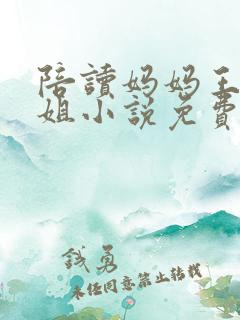 陪讀妈妈王
姐小说免費
钱勇
未经同意禁止转载